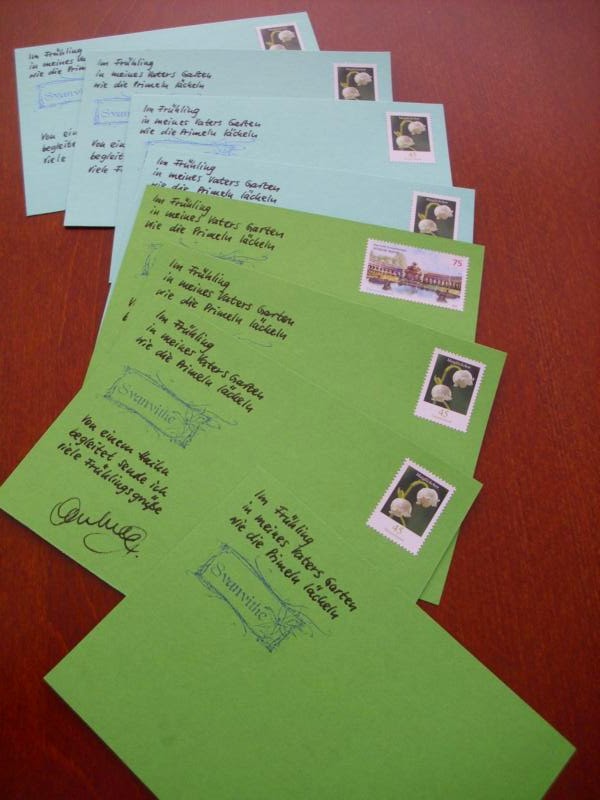 Im Frühling
in meines Va
wie die Prim
Svanvi
Von ein
begleite
viele
Im Frühling
in meines Vaters Garten
wie die Primeln lächeln
Von ei
begleit
viele F
Im Frühling
in meines Vaters Garten
wie die Primeln lächeln
Im Frühling
in meines Vaters Garten
wie die Primeln lächeln
Im Frühling
in meines Vaters Garten
wie die Primeln lächeln
75
Im Frühling
in meines Vaters Garten
wie die Primeln lächeln
45
Im Frühling
in meines Vaters Garten
wie die Primeln lächeln
Svanvithe
45
Von einem Haiku
begleitet sende ich
viele Frühlingsgrüße
Im Frühling
in meines Vaters Garten
wie die Primeln lächeln
Svanvithe